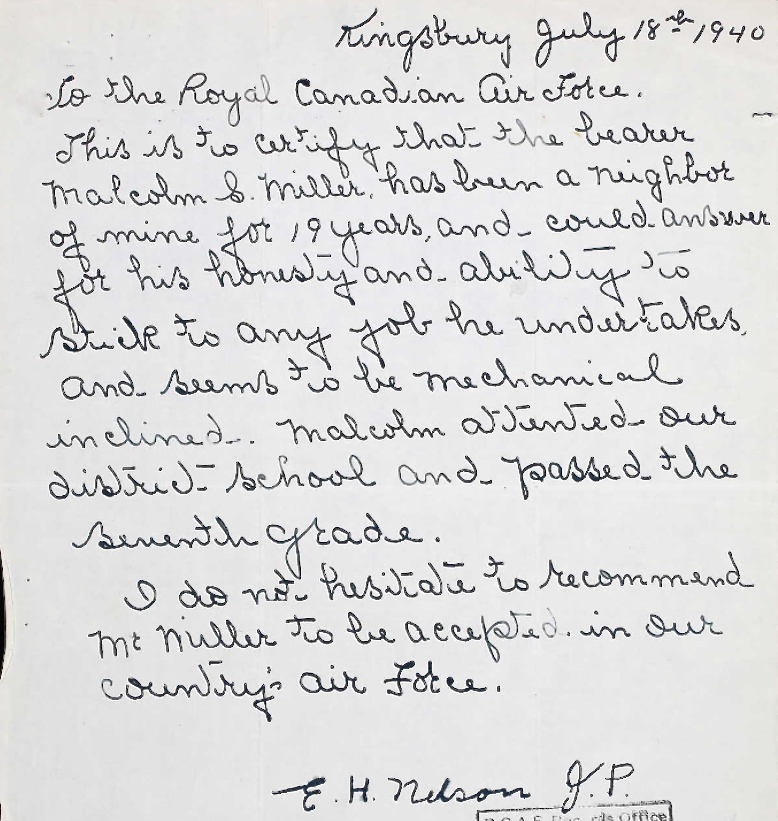 Kingsbury July 18th 1940
To the Royal Canadian Air Force.
This is to certify that the bearer
Malcolm S. Miller, has been a neighbor
of mine for 19 years, and could answer
for his honesty and ability to
stick to any job he undertakes,
and seems to be mechanical
inclined. Malcolm attented our
district school and passed the
seventh grade.
I do not hesitate to recommend
Mr Miller to be accepted in our
country's air Force.
E. H. Nelson J.P.
Office